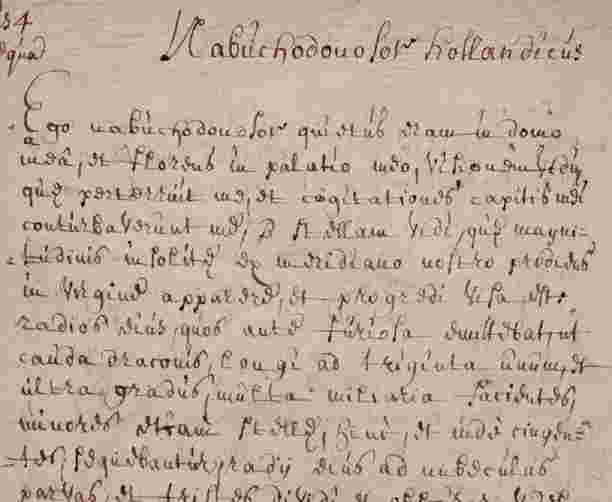 34
quad
Nabuchodonosor hollandicus
Ego nabuchodonosor quietus eram in domo
meâ, et florens in palatio meo, visionem vidi,
quę perterruit me, et cogitationes capitis mei
conturbaverunt me, stellam vidi, quę magni-
tudinis insolitę ex meridiano nostro prodiens
in virgine apparere, et progredi visa est.
radios eius, quos ante furiosa emittebat, ut
cauda draconis, longi ad triginta unum, et
ultra gradus, multa miliaria facientes,
minores etiam stellę, hinc, et inde cingen-
tes, sequebantur, radij eius ad nubeculas
parvas, et